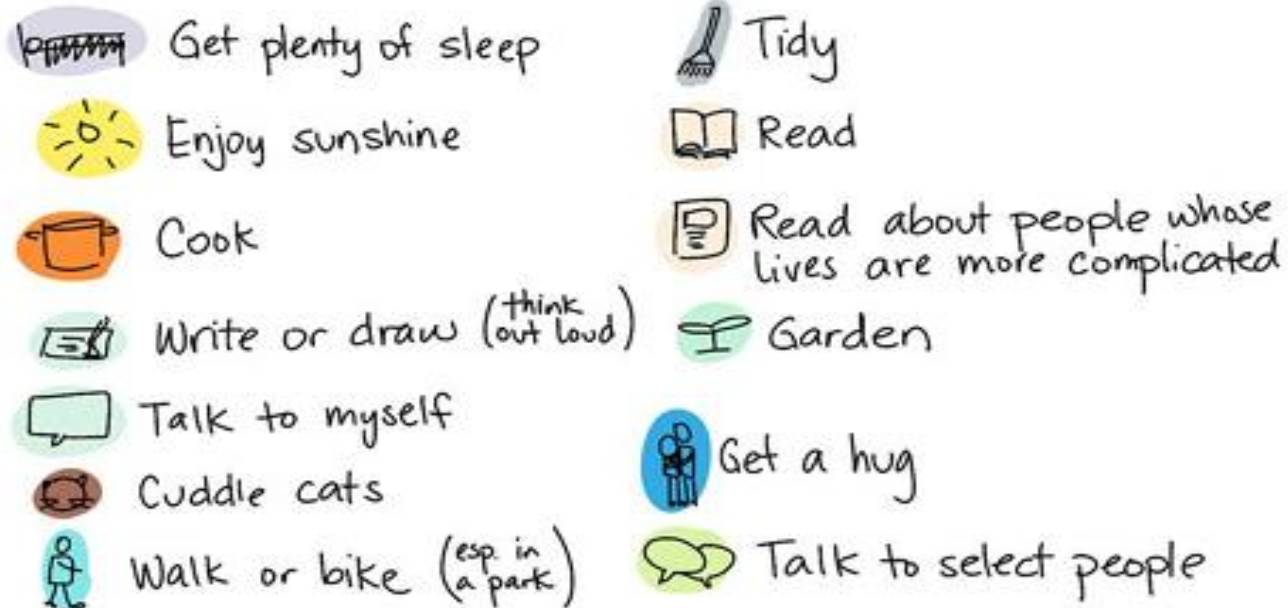 Get plenty of sleep
Enjoy sunshine
Cook
Write or draw (think
out loud)
Talk to myself
Cuddle cats
Walk or bike (esp. in
a park)
Tidy
Read
Read about people whose
lives are more complicated
Garden
Get a hug
Talk to select people